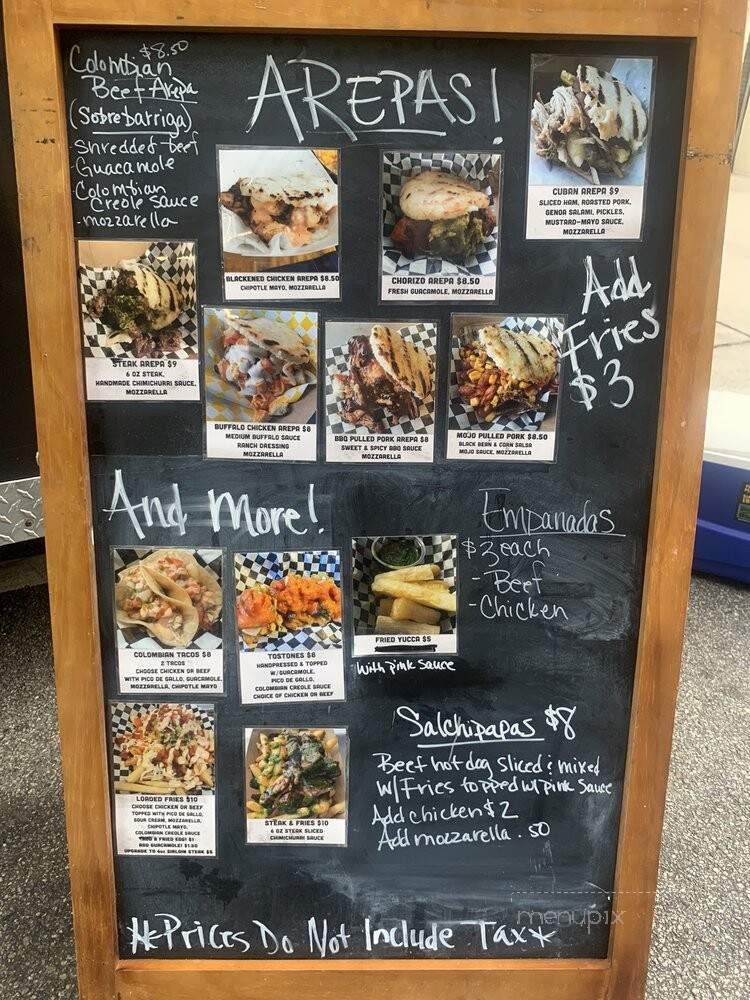 $8.50
Colombian
Beef Arepa
(Sobrebarriga)
-Shredded beef
-Guacamole
-Colombian
Creole Sauce
-mozzarella
AREPAS!
CUBAN AREPA $9
SLICED HAM, ROASTED PORK,
GENOA SALAMI, PICKLES,
MUSTARD-MAYO SAUCE,
MOZZARELLA
BLACKENED CHICKEN AREPA $8.50
CHIPOTLE MAYO, MOZZARELLA
CHORIZO AREPA $8.50
FRESH GUACAMOLE, MOZZARELLA
Add
Fries
$3
STEAK AREPA $9
6 OZ STEAK,
HANDMADE CHIMICHURRI SAUCE,
MOZZARELLA
BUFFALO CHICKEN AREPA $8
MEDIUM BUFFALO SAUCE
RANCH DRESSING
MOZZARELLA
BBQ PULLED PORK AREPA $8
SWEET & SPICY BBQ SAUCE
MOZZARELLA
MOJO PULLED PORK $8.50
BLACK BEAN & CORN SALSA
MOJO SAUCE, MOZZARELLA
And More!
Empanadas
$3 each
- Beef
- Chicken
COLOMBIAN TACOS $8
2 TACOS
CHOOSE CHICKEN OR BEEF
WITH PICO DE GALLO, GUACAMOLE,
MOZZARELLA, CHIPOTLE MAYO
TOSTONES $8
HANDPRESSED & TOPPED
W/GUACAMOLE,
PICO DE GALLO,
COLOMBIAN CREOLE SAUCE
CHOICE OF CHICKEN OR BEEF
FRIED YUCCA $5
With pink sauce
LOADED FRIES $10
CHOOSE CHICKEN OR BEEF
TOPPED WITH PICO DE GALLO,
SOUR CREAM, MOZZARELLA,
CHIPOTLE MAYO,
COLOMBIAN CREOLE SAUCE
ADD A FRIED EGG! $1
ADD GUACAMOLE! $1.50
UPGRADE TO 4oz SIRLOIN STEAK $5
STEAK & FRIES $10
6 OZ STEAK SLICED
CHIMICHURRI SAUCE
Salchipapas $8
Beef hot dog sliced & mixed
w/Fries topped w/ pink Sauce
Add chicken $2
Add mozzarella .50
*Prices Do Not Include Tax*
menupix